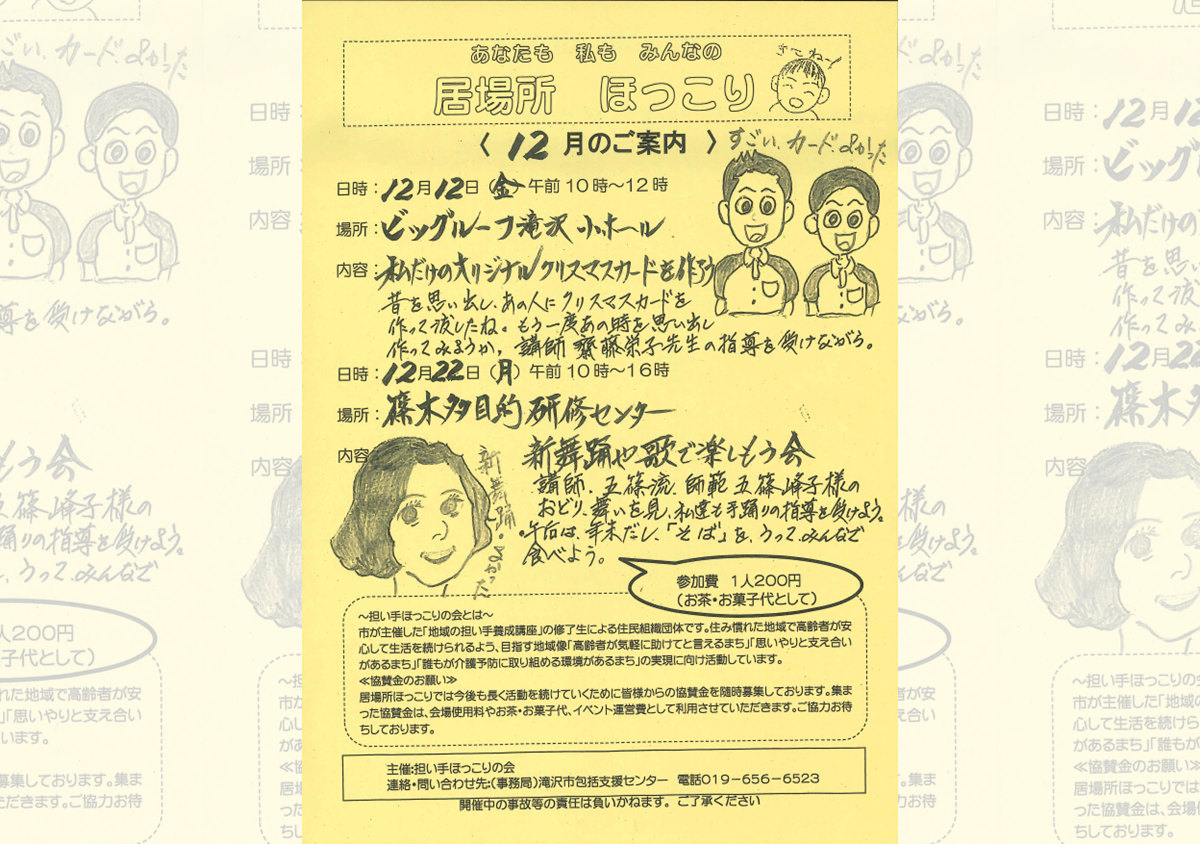 あなたも 私も みんなの
きてねー!
居場所 ほっこり
〈 12月のご案内 〉
すごい、カード、よかった
日時：12月12日（金）午前10時～12時
場所：ビッグルーフ滝沢 小ホール
内容：私だけのオリジナルクリスマスカードを作ろう
昔を思い出し、あの人にクリスマスカードを
作って渡したね。もう一度あの時を思い出し
作ってみようか, 講師 齋藤栄子先生の指導を受けながら。
日時：12月22日（月）午前10時～16時
場所：篠木多目的研修センター
内容
新舞踊や歌で楽しもう会
講師、五篠流、師範 五篠峰子様の
おどり、舞いを見、私達も手踊りの指導を受けよう。
・午后は、年末だし、「そば」を、うって、みんなで
食べよう。
新舞踊・よかった
参加費 1人200円
（お茶・お菓子代として）
～担い手ほっこりの会とは～
市が主催した「地域の担い手養成講座」の修了生による住民組織団体です。住み慣れた地域で高齢者が安
心して生活を続けられるよう、目指す地域像「高齢者が気軽に助けてと言えるまち」「思いやりと支え合い
があるまち」「誰もが介護予防に取り組める環境があるまち」の実現に向け活動しています。
≪協賛金のお願い≫
居場所ほっこりでは今後も長く活動を続けていくために皆様からの協賛金を随時募集しております。集ま
った協賛金は、会場使用料やお茶・お菓子代、イベント運営費として利用させていただきます。ご協力お待
ちしております。
主催：担い手ほっこりの会
連絡・問い合わせ先：（事務局）滝沢市包括支援センター 電話019-656-6523
開催中の事故等の責任は負いかねます。ご了承ください